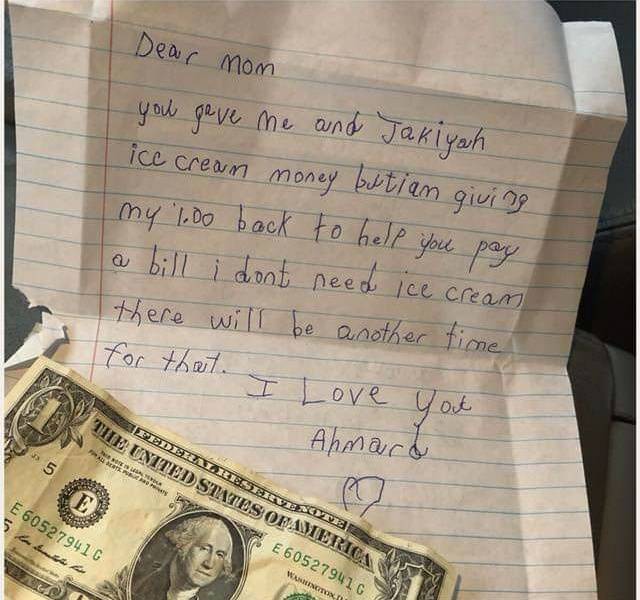 Dear Mom
you gave me and Jakiyah
ice cream money butiam giving
my 1.00 back to help you pay
a bill i dont need ice cream
there will be another time
for that.
I Love you
Ahmard
FEDERAL RESERVE NOTE
THE UNITED STATES OF AMERICA
1
J5
5
E
E 60527941 G
E 60527941 G
WASHINGTON, D